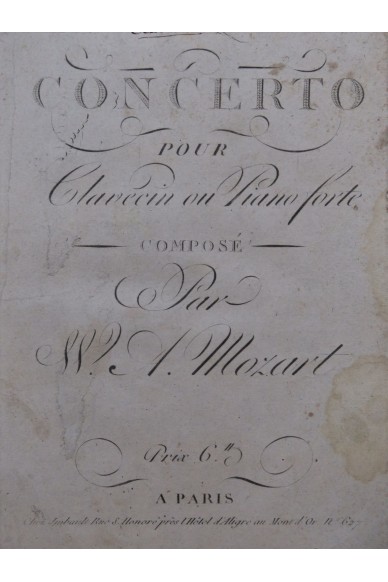 CONCERTO
POUR
Clavecin ou Piano forte
COMPOSÉ
Par
W. A. Mozart
Prix 6.#
A PARIS
Rue S. Honoré près l'Hôtel d'Aligre au Mont d'Or N.